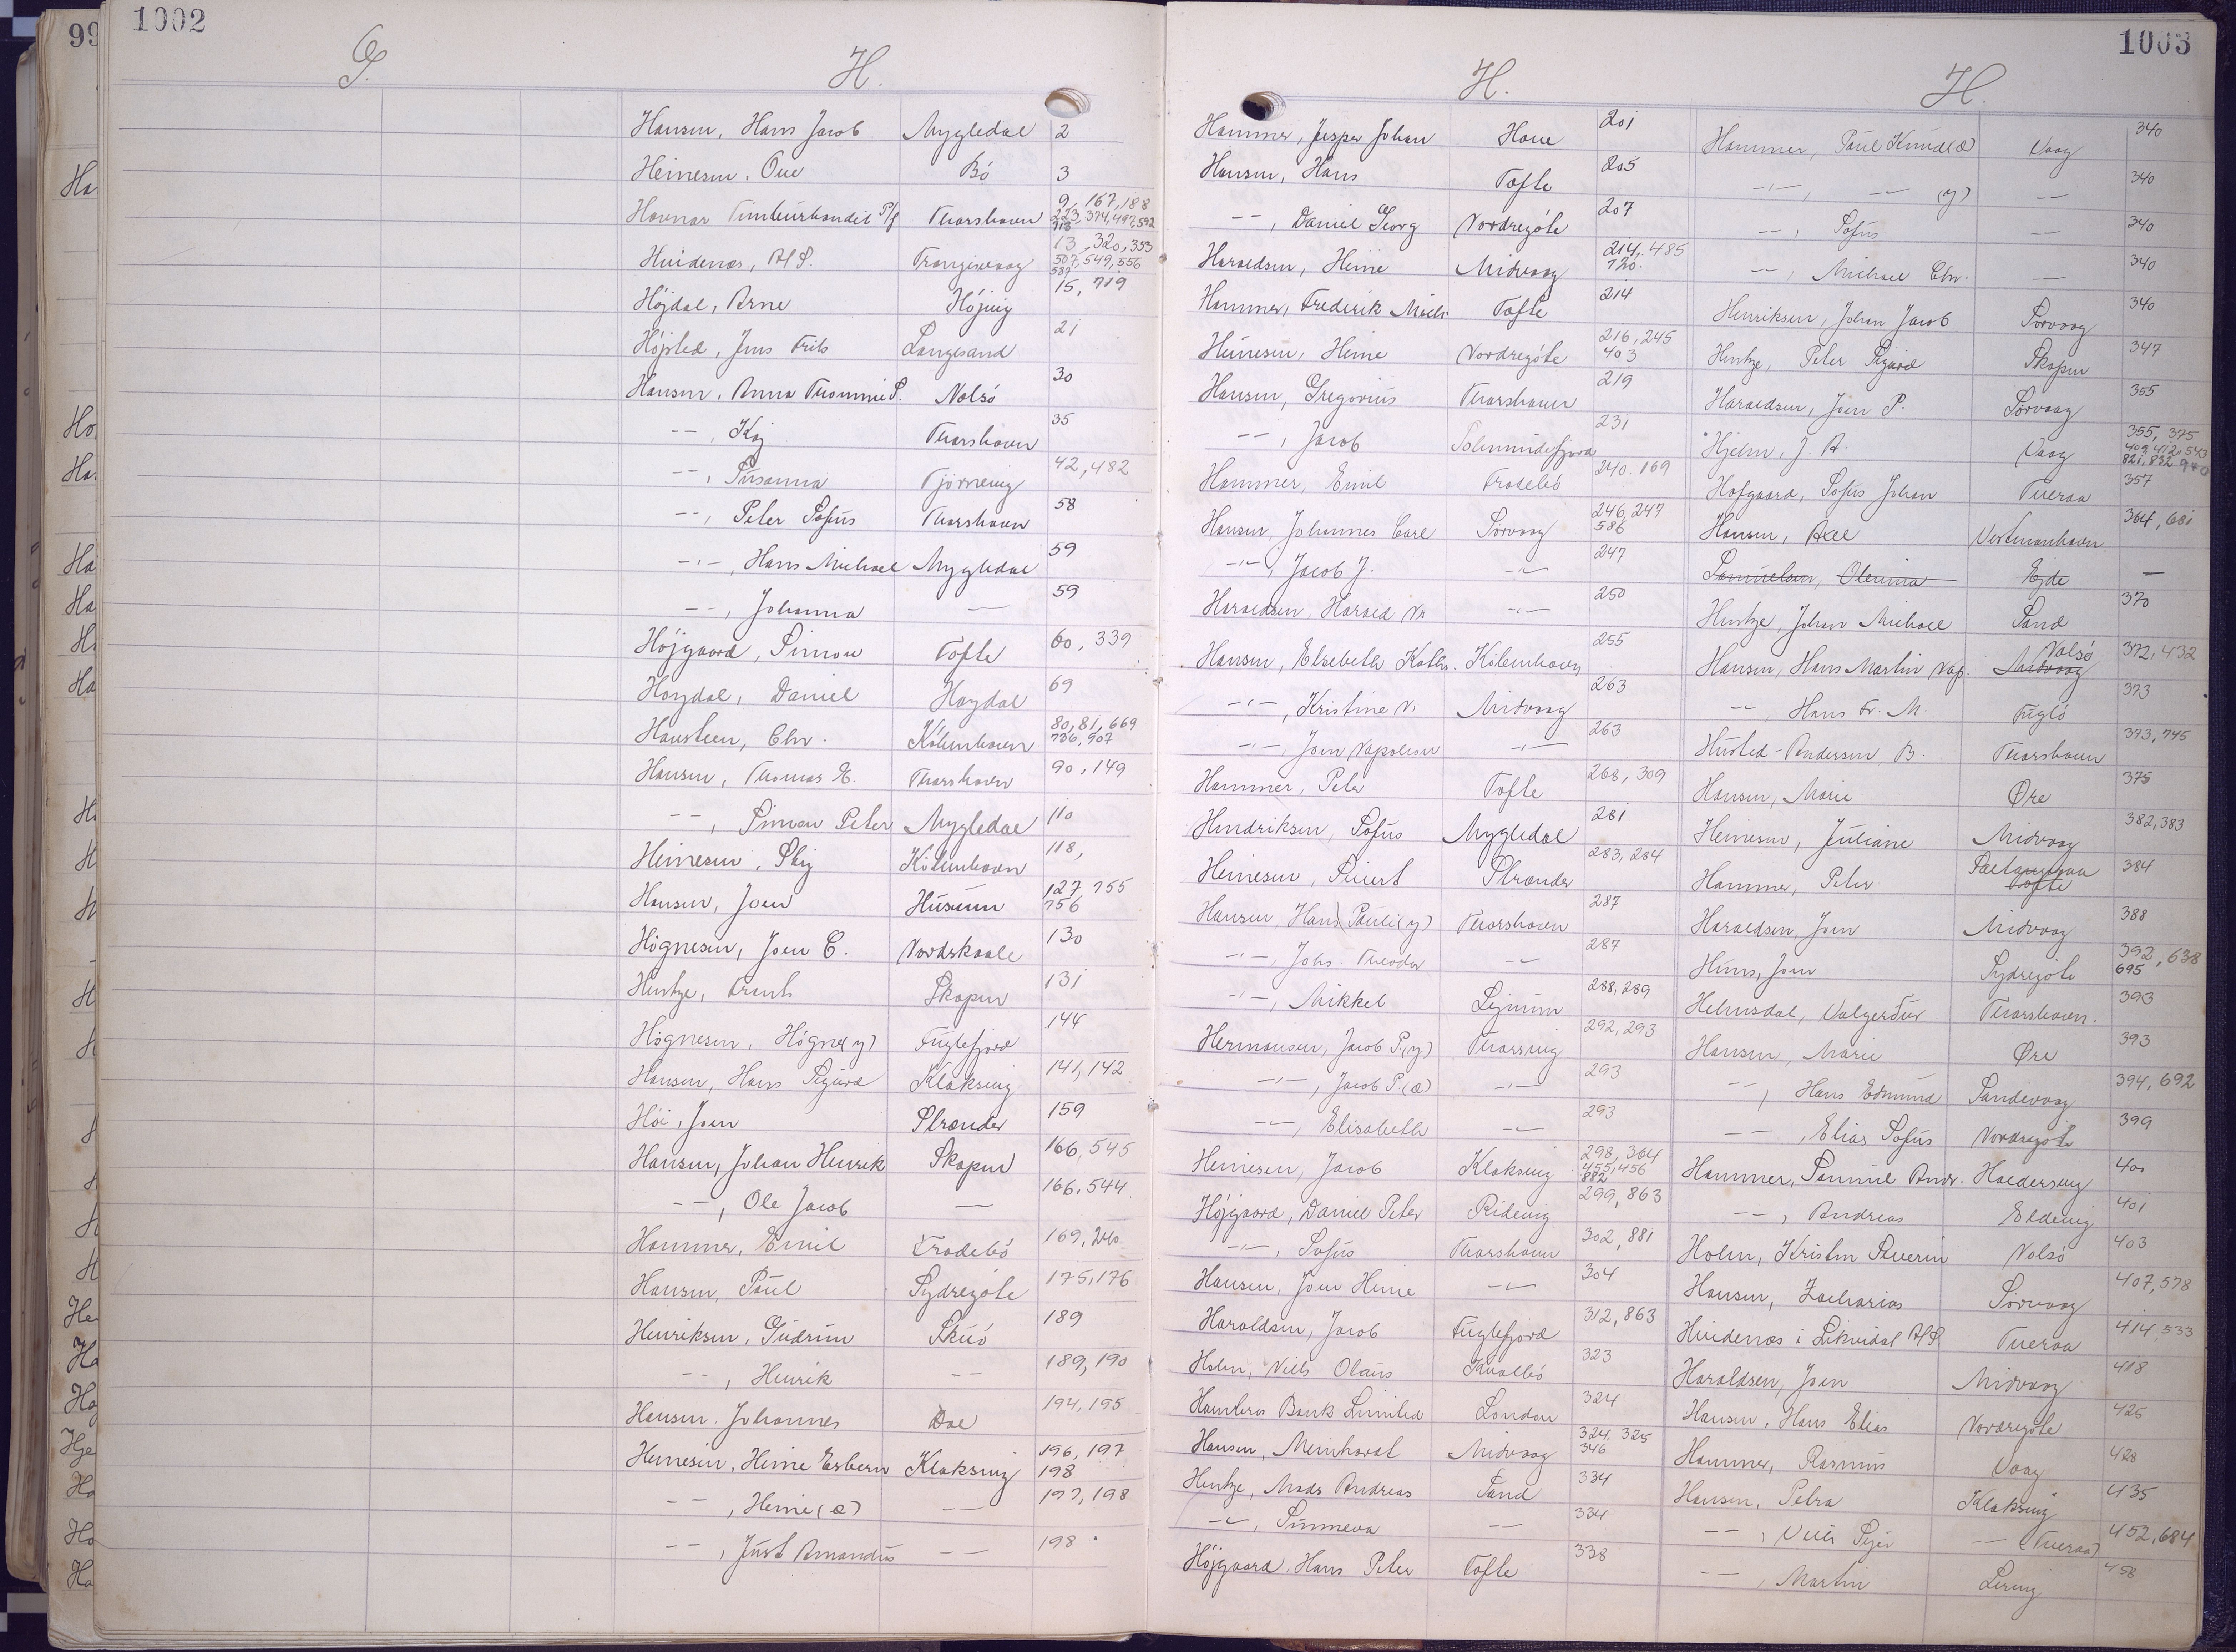 99
1002
G.
H.
Hansen, Hans Jacob Mygledal 2
Heinesen, Ove Bö 3
Havnar Timburhandil P/f Thorshavn 9, 167, 188
223, 374, 497, 592
713
Hvidenæs, A/S. Trangisvaag 13, 320, 353
507, 549, 556
589
Højdal, Arne Højvig 15, 719
Højsted, Jens Frits Langesand 21
Hansen, Anna Thommine S. Nolsö 30
-"-, Kaj Thorshavn 35
-"-, Susanna Tjörnevig 42, 482
-"-, Peter Sofus Thorshavn 58
-"-, Hans Michael Mygledal 59
-"-, Johanna -"- 59
Højgaard, Simon Tofte 60, 339
Hoydal, Daniel Hoydal 69
Hansteen, Chr. Köbenhavn 80, 81, 669
736, 907
Hansen, Thomas H. Thorshavn 90, 149
-"-, Simon Peter Mygledal 110
Heinesen, Stig Köbenhavn 118,
Hansen, Joen Husum 127, 755
756
Högnesen, Joen C. Nordskaale 130
Hentze, Frants Skopun 131
Högnesen, Högne (y) Fuglefjord 144
Hansen, Hans Sigurd Klaksvig 141, 142
Höi, Joen Strænder 159
Hansen, Johan Henrik Skopun 166, 545
-"-, Ole Jacob -"- 166, 544
Hammer, Emil Frodebö 169, 240
Hansen, Poul Sydregöte 175, 176
Henriksen, Gudrun Skuö 189
-"-, Henrik -"- 189, 190
Hansen, Johannes Dal 194, 195
Heinesen, Heine Esbern Klaksvig 196, 197
198
-"-, Heine (æ) -"- 197, 198
-"-, Just Amandus -"- 198
1003
H.
H.
Hammer, Jesper Johan Hove 201
Hansen, Hans Tofte 205
-"-, Daniel Georg Nordregöte 207
Haraldsen, Heine Midvaag 214, 485
720.
Hammer, Frederik Mich. Tofte 214
Heinesen, Heine Nordregöte 216, 245
403
Hansen, Gregorius Thorshavn 219
-"-, Jacob Solmundefjord 231
Hammer, Emil Frodebö 240. 169
Hansen, Johannes Carl Sörvaag 246, 247
586
-"-, Jacob J. -"- 247
Haraldsen, Harald N. -"- 250
Hansen, Elsebeth Kath. Köbenhavn 255
-"-, Kristine N. Midvaag 263
-"-, Joen Napoleon -"- 263
Hammer, Peter Tofte 268, 309
Hendriksen, Sofus Mygledal 281
Heinesen, Sivert Strænder 283, 284
Hansen, Hans Pauli (y) Thorshavn 287
-"-, Johs. Theodor -"- 287
-"-, Mikkel Lejnum 288, 289
Hermansen, Jacob P. (y) Thorsvig 292, 293
-"-, Jacob P. (æ) -"- 293
-"-, Elisabeth -"- 293
Heinesen, Jacob Klaksvig 298, 364
455, 456
882
Højgaard, Daniel Peter Ridevig 299, 863
-"-, Sofus Thorshavn 302, 881
Hansen, Joen Heine -"- 304
Haraldsen, Jacob Fuglefjord 312, 863
Holm, Niels Olaus Kvalbö 323
Hambros Bank Limited London 324
Hansen, Meinhardt Midvaag 324, 325
346
Hentze, Mads Andreas Sand 334
-"-, Sunneva -"- 334
Højgaard, Hans Peter Tofte 338
Hammer, Poul Knud (æ) Vaag 340
-"-, -"- (y) -"- 340
-"-, Sofus -"- 340
-"-, Michael Chr. -"- 340
Henriksen, Johan Jacob Sörvaag 340
Hentze, Peter Sigurd Skopun 347
Haraldsen, Joen P. Sörvaag 355
Hjelm, J. A. Vaag 355, 375
409, 412, 543
821, 832, 940
Hofgaard, Sofus Johan Tveraa 357
Hansen, Axel Vestmanhavn 364, 681
Samuelsen, Olevina Ejde -
Hentze, Johan Michael Sand 370
Hansen, Hans Martin Nap. Nolsö Midvaag 372, 432
-"-, Hans Fr. M. Fuglö 373
Husted-Andersen B. Thorshavn 373, 745
Hansen, Marie Øre 375
Heinesen, Juliane Midvaag 382, 383
Hammer, Peter Saltangeraa Tofte 384
Haraldsen, Joen Midvaag 388
Heins, Joen Sydregöte 392, 638
695
Helmsdal, Valgerdur Thorshavn. 393
Hansen, Marie Øre 393
-"-, Hans Edmund Sandevaag 394, 692
-"-, Elias Sofus Nordregöte 399
Hammer, Samuel Andr. Haldersvig 400
-"-, Andreas Eldevig 401
Holm, Kristen Severin Nolsö 403
Hansen, Zacharias Sörvaag 407, 578
Hvidenæs i Likvidat A/S. Tveraa 414, 533
Haraldsen, Joen Midvaag 418
Hansen, Hans Elias Nordregöte 425
Hammer, Rasmus Vaag 428
Hansen, Petra Klaksvig 435
-"-, Niels Pejer -"- (Tveraa) 452, 684
-"-, Martin Lervig 458